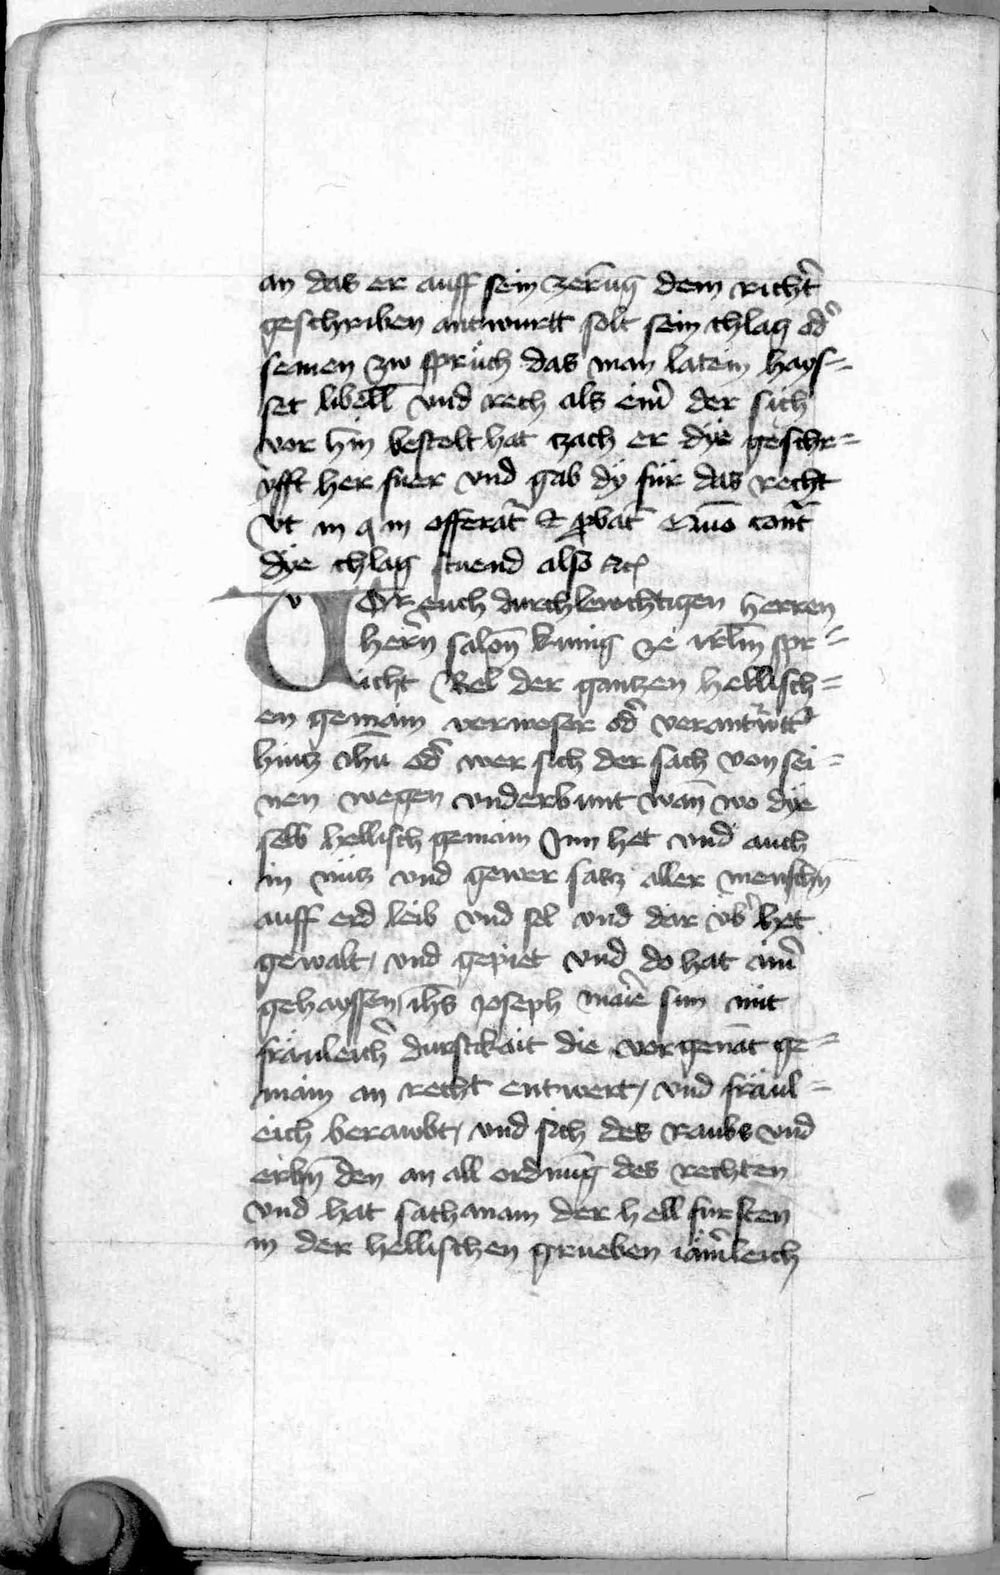 an das er auff sein zerūg dem richt̄
geschriben antwurtt solt sein chlag od̄
seinen zw sprüch das man latein hays=
set libell vnd rech als eim̄ der sich
vor hin bestelt hat zach er dÿe geschr=
yfft her fuer vnd gab dÿ für das recht
vt in q in offerat̄ et ꝓbat̄ cont̄
dÿe chlag stuend also etc̄
VOr euch durchlewchtigen herren
hern̄ salon̄ kunig ze irl̄m spr=
icht Bel der gantzen hellisch=
en gemain verweser od̄ verantw̄tt̄
hintz ihū od̄ wer sich der sach von sei=
nen wegen vnderbunt wan̄ wo dÿe
selb hellisch gemain Inn het vnd auch
in nütz vnd gewer satz aller menschn̄
auff erd leib vnd sel vnd dar vb̄ het
gewalt / vnd gepiet vnd do hat aim̄
gehayssen ih̄s Joseph mar̄ie sun mit
fräuleich̄ durstikait die vorgenāt ge=
main an recht entwert / vnd fräul=
eich berawbt / vnd sich des raubs vnd̄
den an all ordnūg des rechten
vnd hat sathanam der hell fursten
in der hellischen grueben iäm̄leich